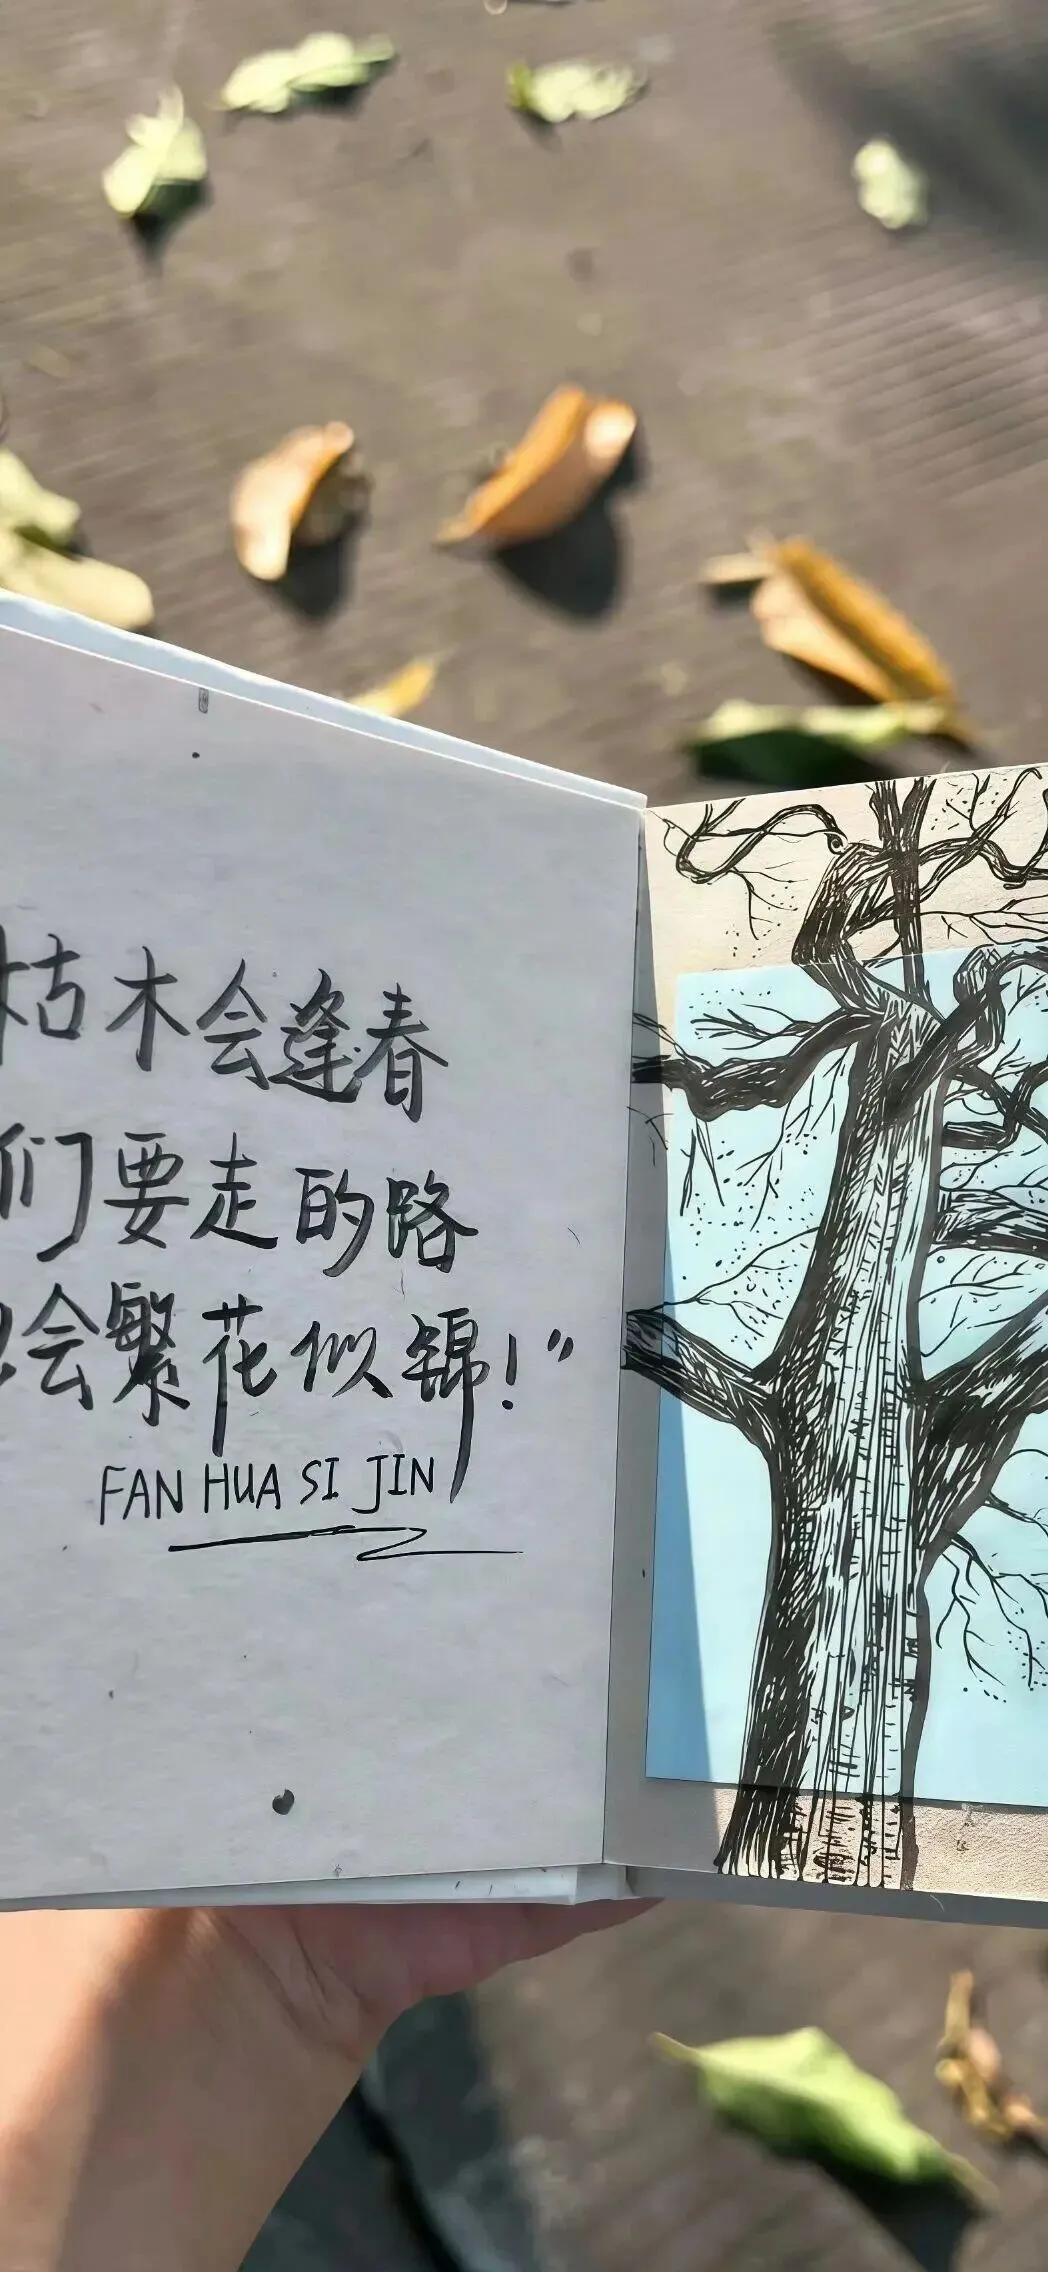 枯木会逢春
们要走的路
会繁花似锦！”
FAN HUA SI JIN